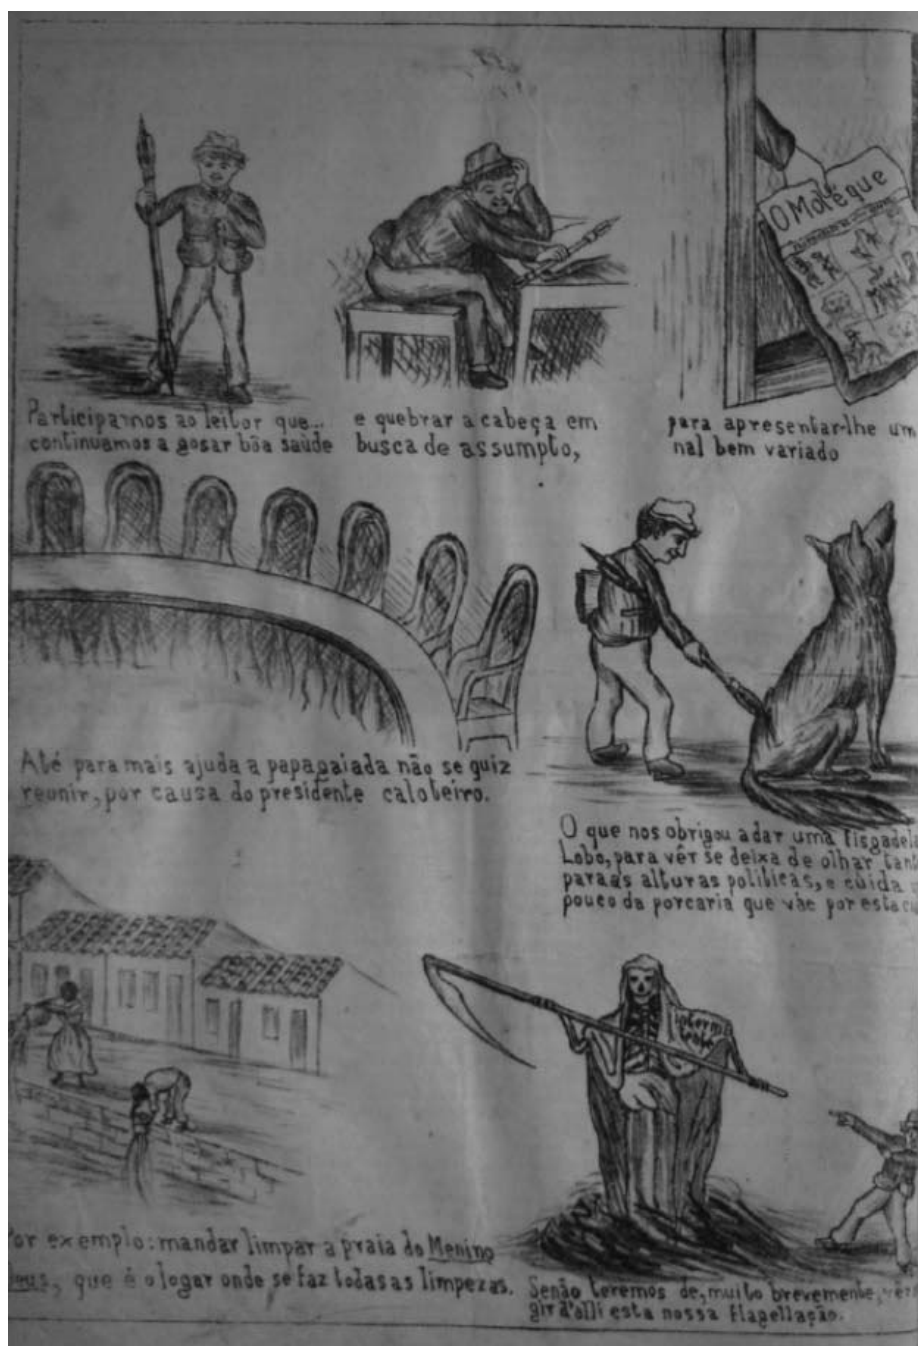 Participamos ao leitor que...
continuamos a gosar bôa saúde
e quebrar a cabeça em
busca de assumpto,
O Moléque
para apresentar-lhe um
nal bem variado
Até para mais ajuda a papagaiada não se quiz
reunir, por causa do presidente caloteiro.
O que nos obrigou a dar uma fisgadela
Lobo, para vêr se deixa de olhar tant
para as alturas politicas, e cuida
pouco da porcaria que vae por esta
or exemplo: mandar limpar a praia do Menino
eus, que é o logar onde se faz todas as limpezas.
Senão teremos de, muito brevemente, vêr
gir d'alli esta nossa flagellação.